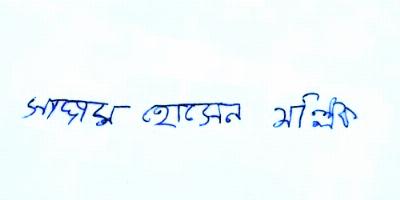 সাদ্দাম হোসেন মল্লিক